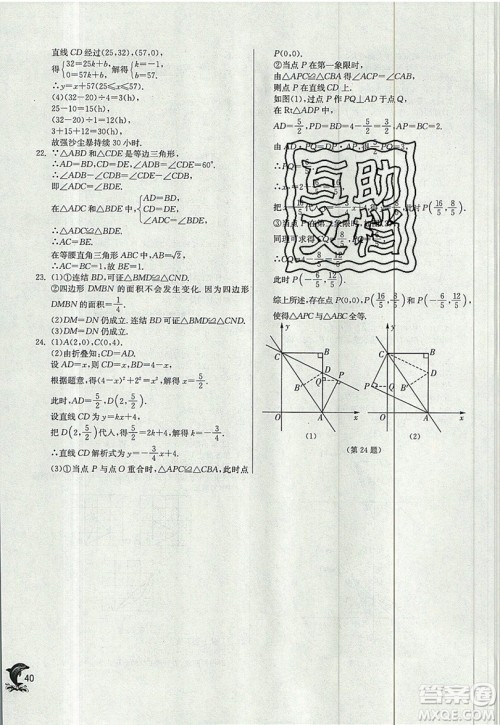 直线 CD 经过(25,32),(57,0).
得{32=25k+b, 0=57k+b, 解得{k=-1, b=57.
∴y=-x+57(25≤x≤57)
(4)(32-20)÷4=3(h),
25-10=15(h),
(32-20)÷1=12(h),
3+15+12=30(h),
故强沙尘暴持续 30 小时.
22. ∵△ABD 和△CDE 是等边三角形,
∴AD=BD,CD=DE,∠ADB=∠CDE=60°.
∴∠ADB-∠CDB=∠CDE-∠CDB.
即∠ADC=∠BDE.
在△ADC 和△BDE 中,{AD=BD, CD=DE, ∠ADC=∠BDE,
∴△ADC≌△BDE.
∴AC=BE.
在等腰直角三角形 ABC 中,AB=√2,
∴AC=BC=1,故 BE=1.
23. (1)①连结 BD,可证△BMD≌△CND.
②四边形 DMBN 的面积不会发生变化. 四边形
DMBN 的面积=1/4.
(2)DM=DN 仍成立. 连结 BD,可证△BMD≌△CND.
(3)DM=DN 仍成立.
24. (1)A(2,0),C(0,4)
(2)由折叠知:CD=AD.
设 AD=x,则 CD=x,BD=4-x,
根据题意,得(4-x)²+2²=x². 解得 x=5/2.
此时,AD=5/2,D(2,5/2).
设直线 CD 为 y=kx+4,
把 D(2,5/2)代入,得 5/2=2k+4. 解得 k=-3/4.
∴直线 CD 解析式为 y=-3/4x+4.
(3)①当点 P 与点 O 重合时,△APC≌△CBA,此时点
P(0,0).
②当点 P 在第一象限时,
由△APC≌△CBA 得∠ACP=∠CAB,
则点 P 在直线 CD 上.
如图(1),过点 P 作 PQ⊥AD 于点 Q,
在 Rt△ADP 中,
AP=BC=2,
此时 P(16/5,8/5)
③当点 P
同理可求得
此时 P(-6/5,12/5)
综上所述,存在点 P(0,0),P(16/5,8/5)或 P(-6/5,12/5)
使得△APC 与△CBA 全等.
互助
文档
y
C
B
D
Q
P
B
O
A
x
(1)
y
C
B
D
P
O
A
x
(2)
(第 24 题)
40
答案圈
MXQE.COM